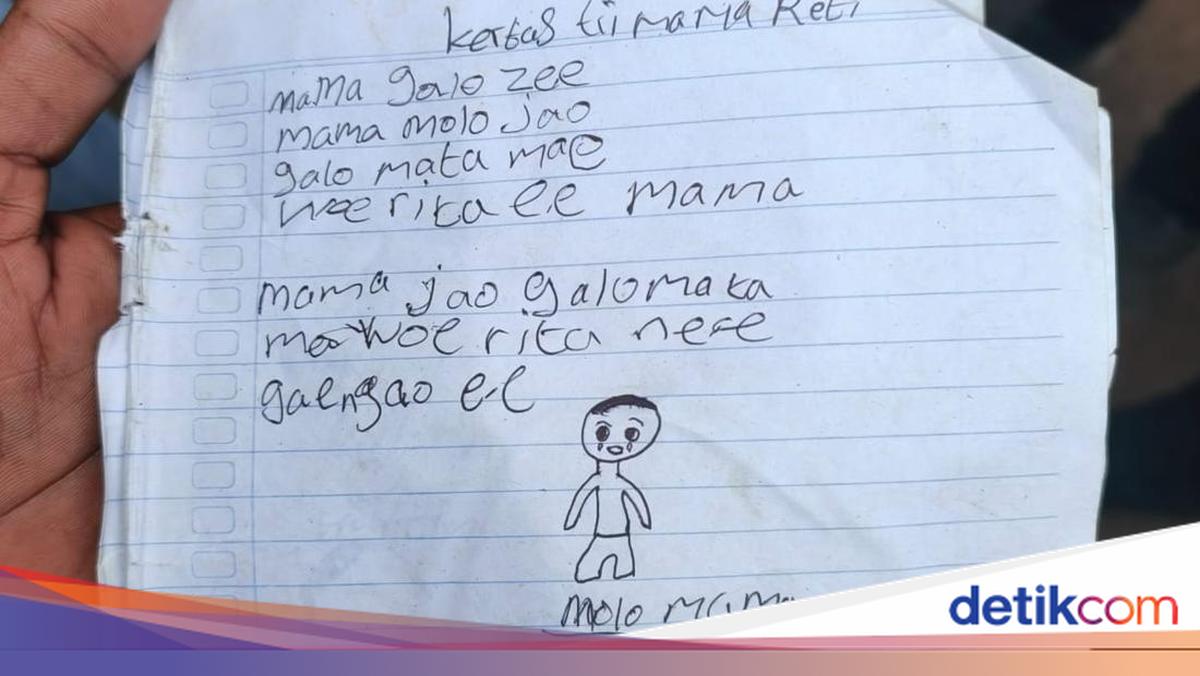 kertas tii mama Reti
mama galo zee
mama molo jao
galo mata mae
woe rita ee mama
mama jao galo mata
mae woe rita ne ee
gaengao ee
molo mama
detikcom